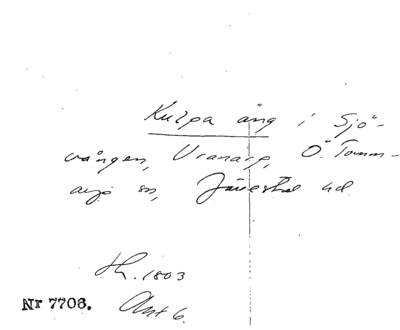 Kulpa äng i Sjö-
vången, Vranarp, Ö. Tomm-
arp sn, Järrestad hd
Lh. 1803
Akt 6.
Nr 7706.